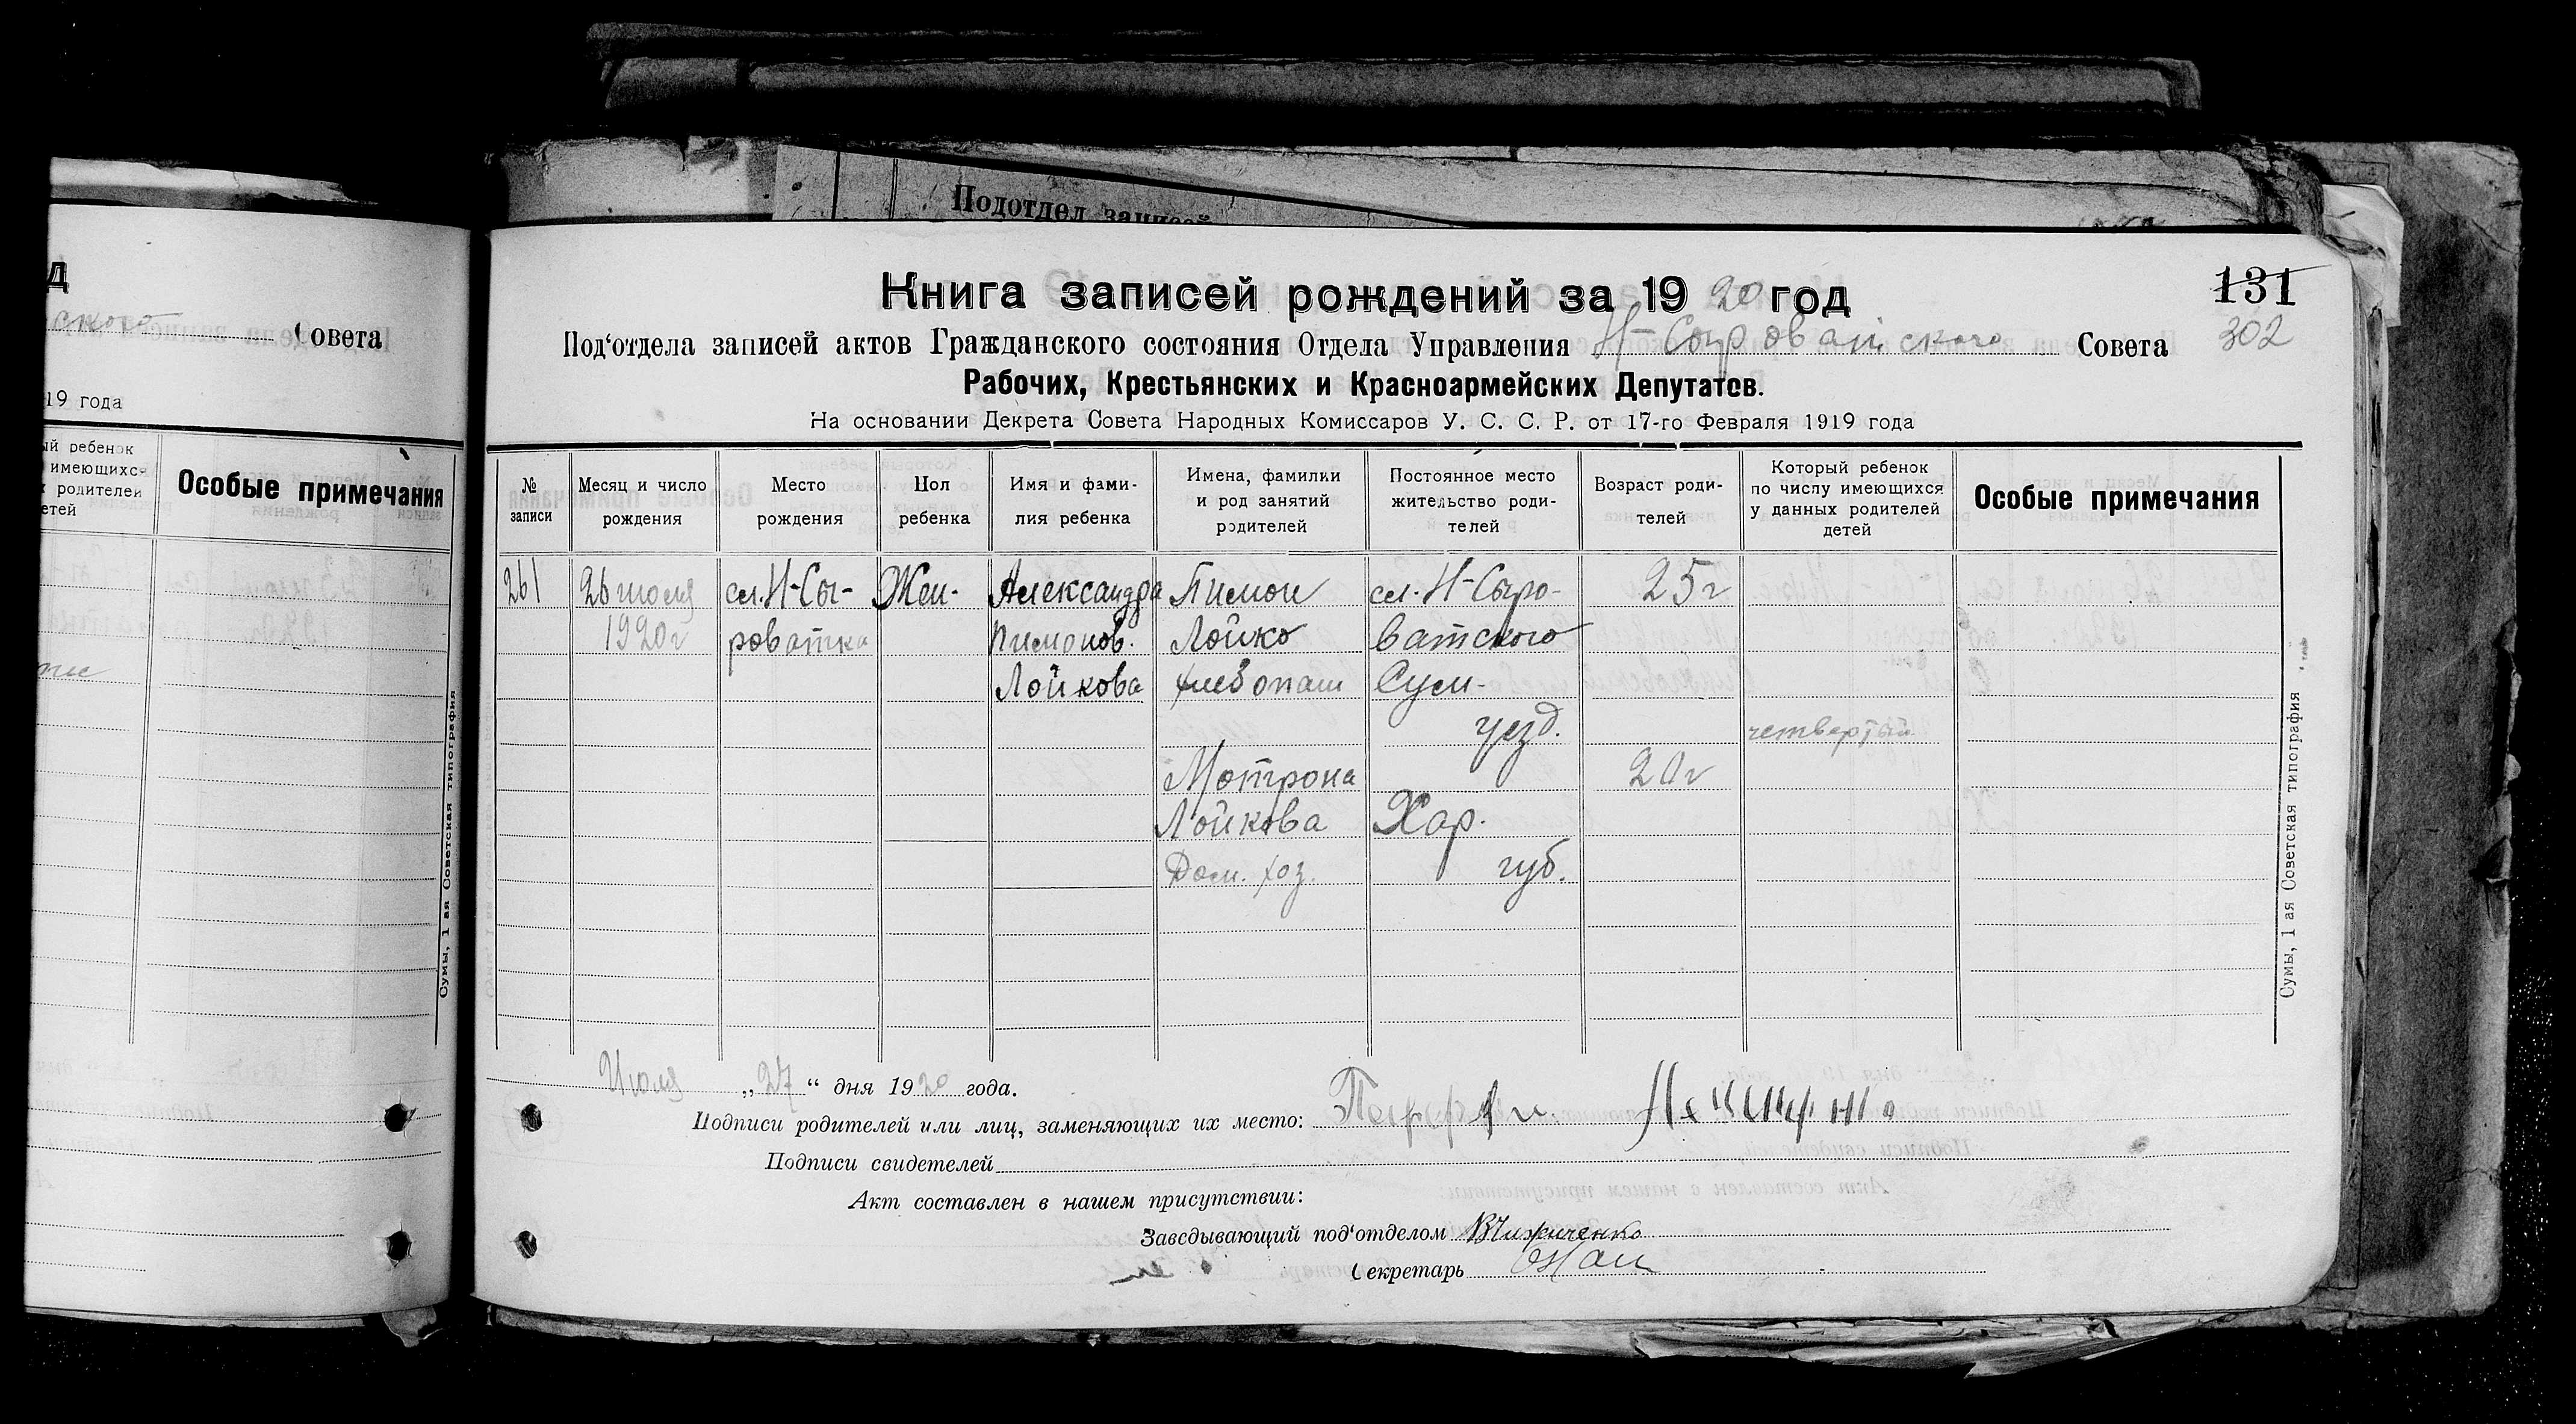 Подотдел записей
д
ского Совета
19 года
ый ребенок
имеющихся
х родителей
етей
Особые примечания
Сумы, 1 ая Советская типография
131
302
Книга записей рождений за 1920 год
Под‘отдела записей актов Гражданского состояния Отдела Управления Н-Сыроватского Совета
Рабочих, Крестьянских и Красноармейских Депутатов.
На основании Декрета Совета Народных Комиссаров У. С. С. Р. от 17-го Февраля 1919 года
№ записи
Месяц и число рождения
Место рождения
Пол ребенка
Имя и фами-
лия ребенка
Имена, фамилии
и род занятий
родителей
Постоянное место
жительство роди-
телей
Возраст роди-
телей
Который ребенок
по числу имеющихся
у данных родителей
детей
Особые примечания
261 26 июля сл. Н-Сы- Жен. Александра Пимон сл. Н-Сыро- 25 г
1920 г роватка Пимонов. Лойко ватского
Лойкова хлебопаш Сум.
уезд. четвертый
Мотрона 20 г
Лойкова Хар.
Дом. хоз. губ.
Сумы, 1 ая Советская типография
Июля „27“ дня 1920 года.
Подписи родителей или лиц, заменяющих их место:
Подписи свидетелей
Акт составлен в нашем присутствии:
Заведывающий под‘отделом В Чижиченко
Секретарь